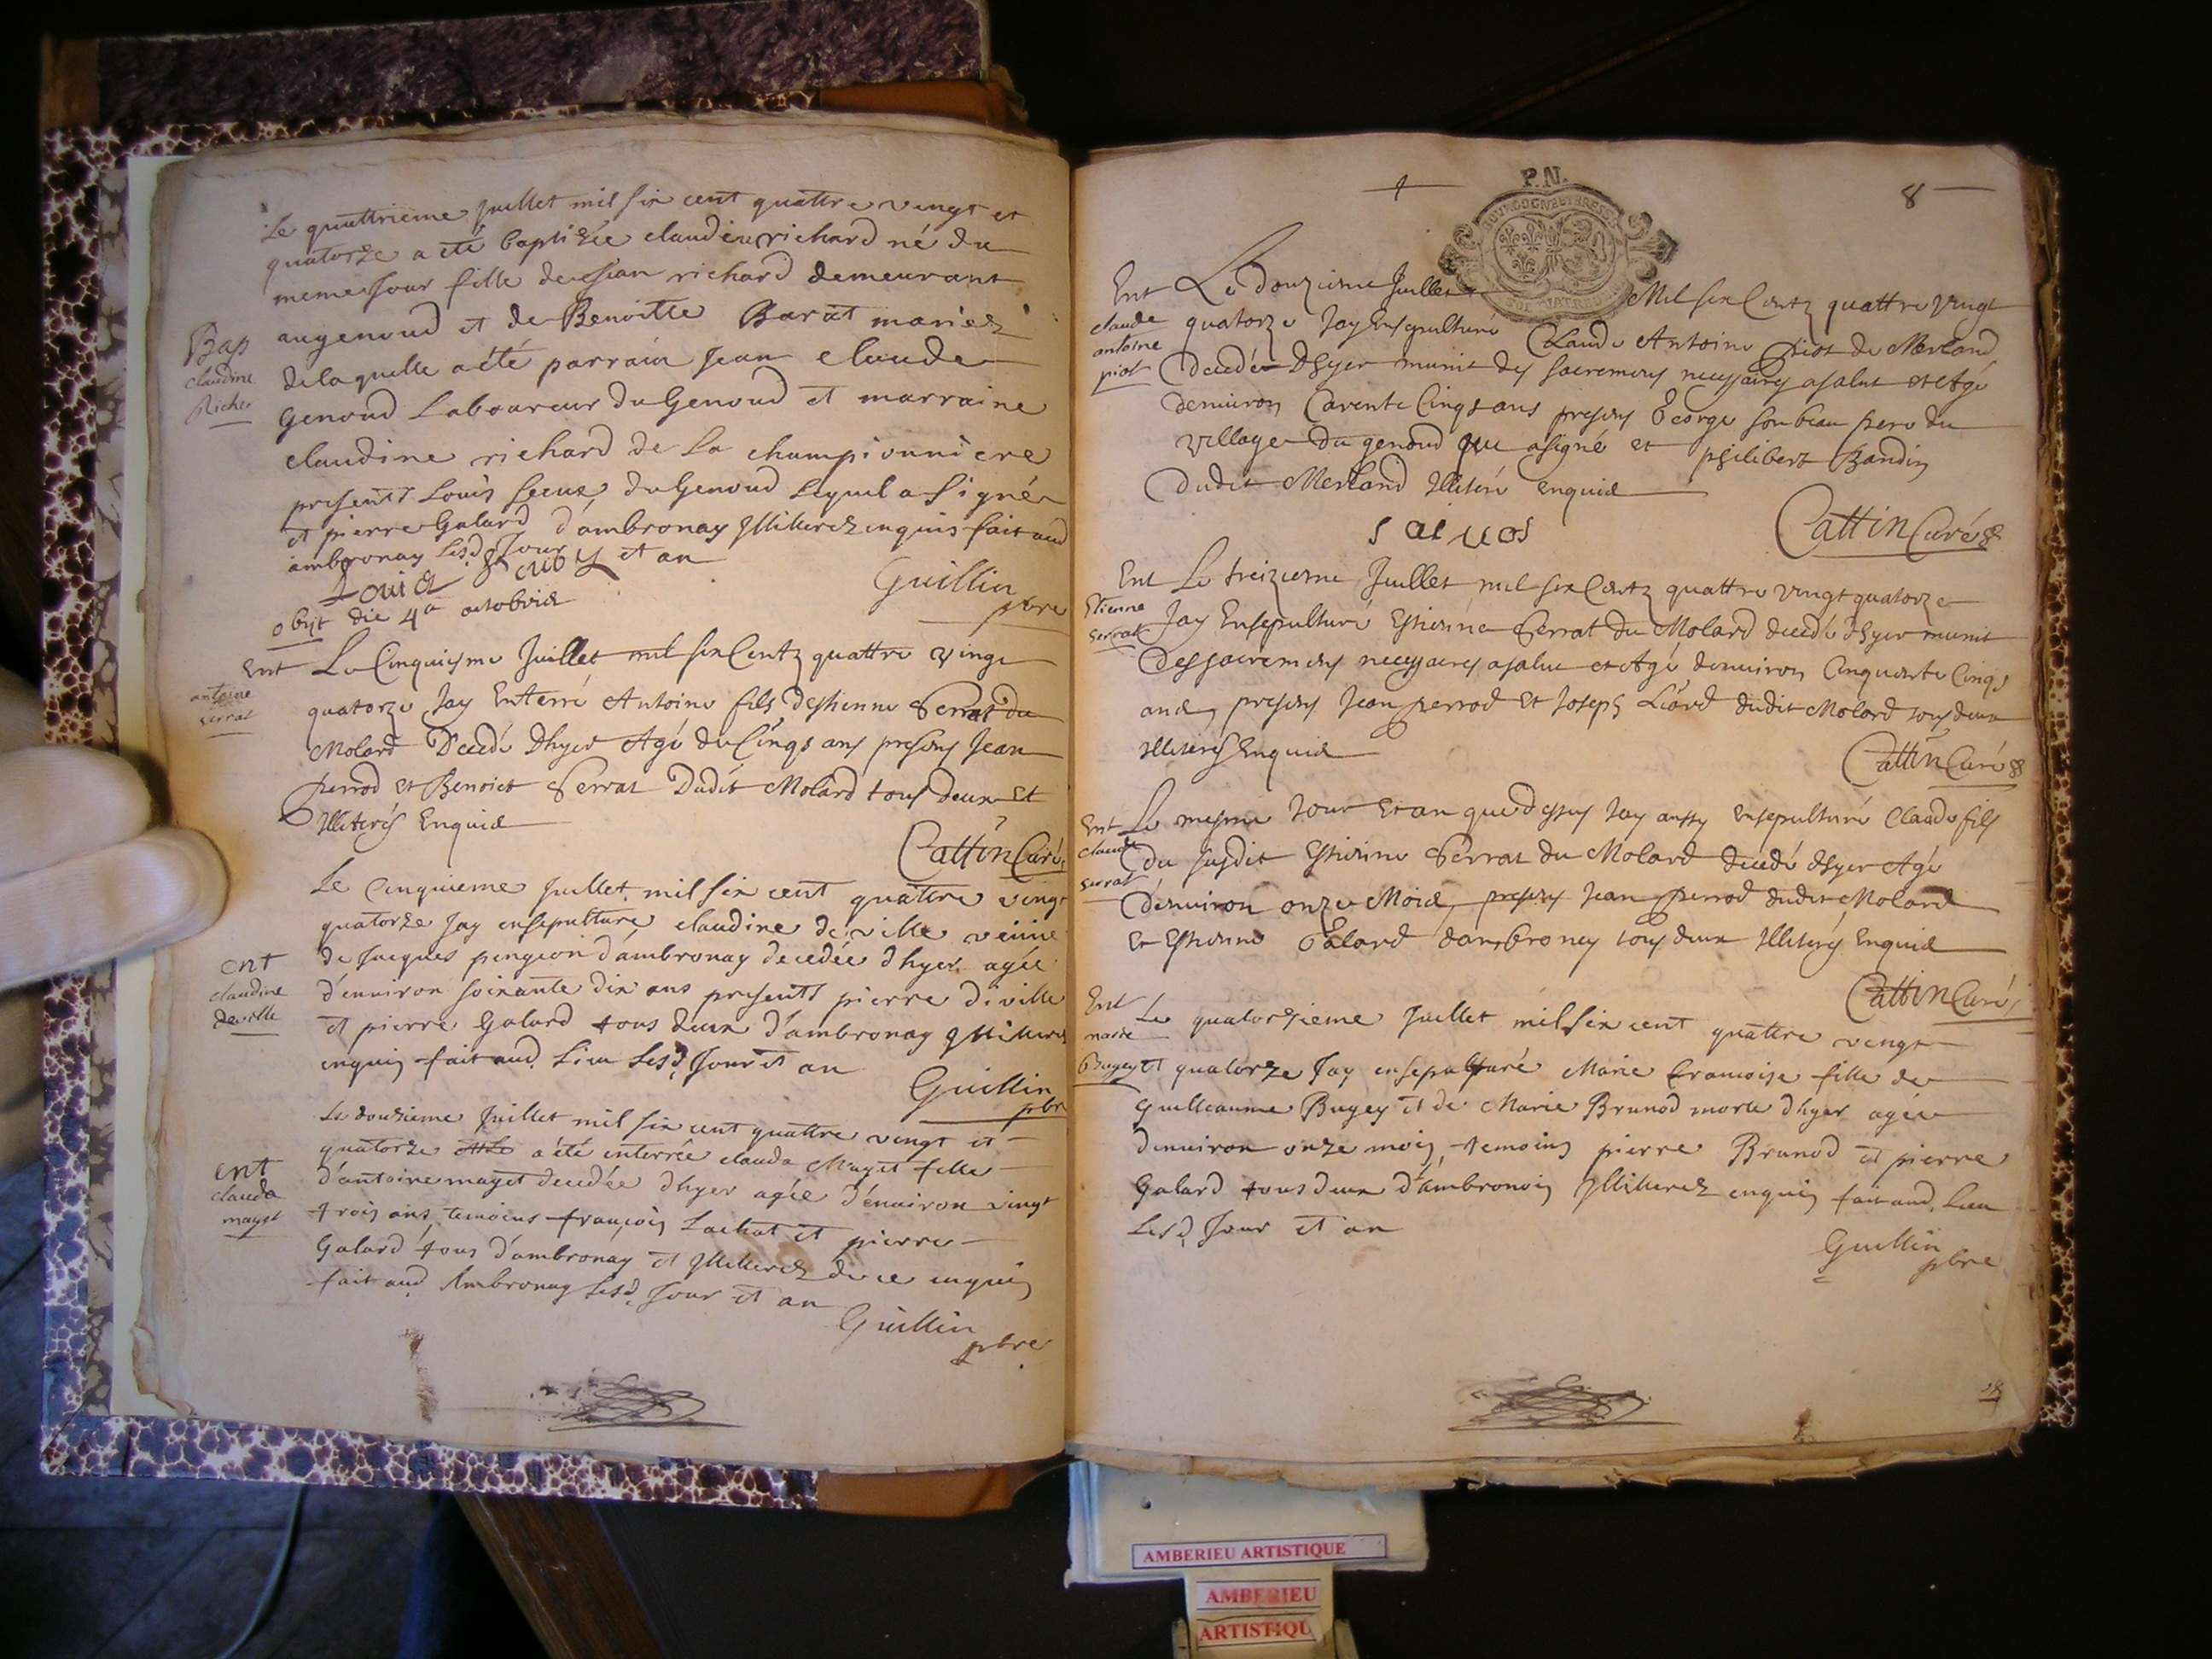 Le quattrieme Juillet mil six cent quattre vingt et
quatorze a eté baptisée claudine richard né du
meme Jour fille de Jean richard demeurant
au genoud et de Benoitte Barat mariez
Bap
claudine
Richer
de laquelle a été parrain Jean claude
Genoud Laboureur du Genoud et marraine
claudine richard de La championniere
presents Louis du Genoud Lequel a signé
et pierre Galard d'ambronay Illitterez enquis fait aud
ambronay lesd Jour et an
Guillin
pbre
obijt die 4a octobris
Ent
antoine
serrat
Le Cinquiesme Juillet mil six Centz quattre vingt
quatorze Jay Enterré Antoine fils d'Estienne Serrat du
Molard Decedé Dhyer Agé de Cinqs ans presens Jean
perrod et Benoict Serrat Dudit Molard tous deux Et
Illiterés Enquis
Cattin Curé
ent
claudine
deville
Le cinquieme Juillet mil six cent quattre vingt
quatorze Jay ensepulturé claudine de ville veuve
de Jacques pingeon d'ambronay decedée d'hyer agée
d'environ soixante dix ans presents pierre diville
et pierre Galard tous deux d'ambronay Illiterez
enquis fait aud lieu lesd Jour et an
Guillin
pbre
ent
clauda
mayet
Le douzieme Juillet mil six cent quattre vingt et
quatorze a été enterrée clauda Mayet fille
d'antoine mayet decedée d'hyer agée d'environ vingt
trois ans temoins françois Lachat et pierre
Galard tous d'ambronay et Illiterez de ce enquis
fait aud Ambronay lesd Jour et an
Guillin
pbre
P.N.
8
BOURGOGNE ET BRESSE
Ent
claude
antoine
piot
Le Douziesme Juillet Mil six Centz quattre vingt
quatorze Jay Ensepulturé Claude Antoine piot de Merland
decedé Dhyer munit des sacremens necessaires a salut et Agé
denviron Carente Cinqs ans presens George son beau pere du
village du genoud qui a signé et philibert Bandin
dudit Merland Illiteré enquis
Cattin Curé
Ent
Etienne
serrat
Le treiziesme Juillet mil six Centz quattre vingt quatorze
Jay Ensepulturé Estienne Serrat du Molard decedé dhyer munit
des sacremens necessaires a salut et Agé denviron Cinquante Cinqs
ans, presens Jean perrod Et Joseph Liard dudit Molard tous deux
Illiterés Enquis
Cattin Curé
Ent
claude
serrat
Le mesme Jour Et an que dessus Jay aussy ensepulturé Claude fils
du susdit Estienne Serrat du Molard decedé dhyer Agé
denviron onze Mois, presens Jean perrod dudit Molard
Et Estienne Galard dambronay tous deux Illiterés Enquis
Cattin Curé
Ent
marie
Bugey
Le quatorzieme Juillet mil six cent quattre vingt
et quatorze Jay ensepulturé Marie francoise fille de
Guilleaume Bugey et de Marie Brunod morte d'hyer agée
d'environ onze mois, temoins pierre Brunod et pierre
Galard tous deux d'ambronois Illiterez enquis fait aud. lieu
lesd. Jour et an
Guillin
pbre
AMBERIEU ARTISTIQUE
AMBERIEU
ARTISTIQU